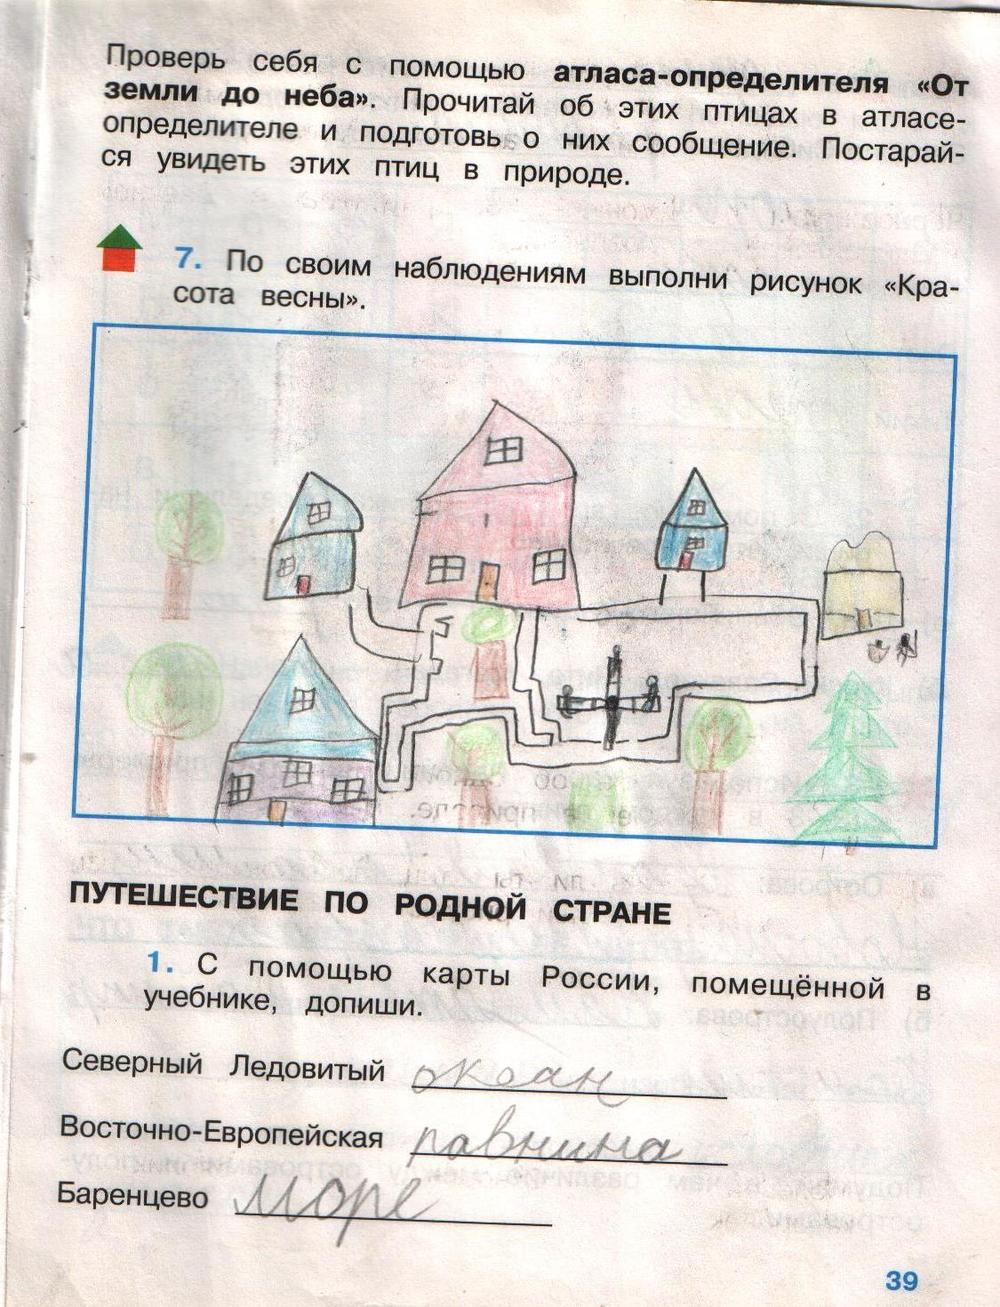 Проверь себя с помощью атласа-определителя «От
земли до неба». Прочитай об этих птицах в атласе-
определителе и подготовь о них сообщение. Постарай-
ся увидеть этих птиц в природе.
7. По своим наблюдениям выполни рисунок «Кра-
сота весны».
ПУТЕШЕСТВИЕ ПО РОДНОЙ СТРАНЕ
1. С помощью карты России, помещённой в
учебнике, допиши.
Северный Ледовитый океан
Восточно-Европейская равнина
Баренцево море
39